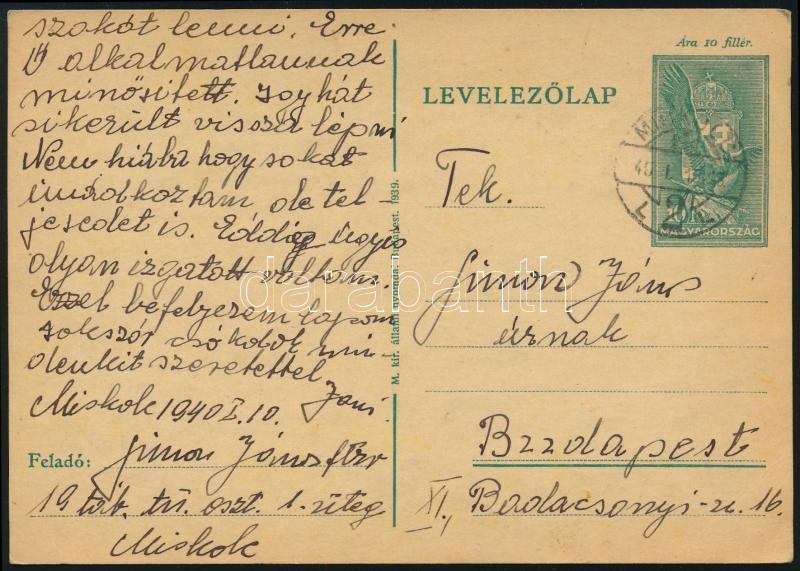 szokót lenni. Erre
Ő alkalmatlannak
minősitett. Igy hát
sikerült vissza lépni
Nem hiába hogy sokat
imádkoztam de tel-
jesedet is. Eddig úgyis
olyan izgatott voltam.
Ezzel befelyezem lapom
sokszór csókolok min-
denkit szeretettel
Miskolc 1940 I. 10. Jani
Feladó: Simon János
19 táb. tü. oszt. 1. üteg
Miskolc
M. kir. állami nyomda. Budapest. 1939.
Ára 10 fillér.
LEVELEZŐLAP
10
MAGYARORSZÁG
Tek.
Simon János
úrnak
Budapest
XI., Badacsonyi-u. 16.
darabanth